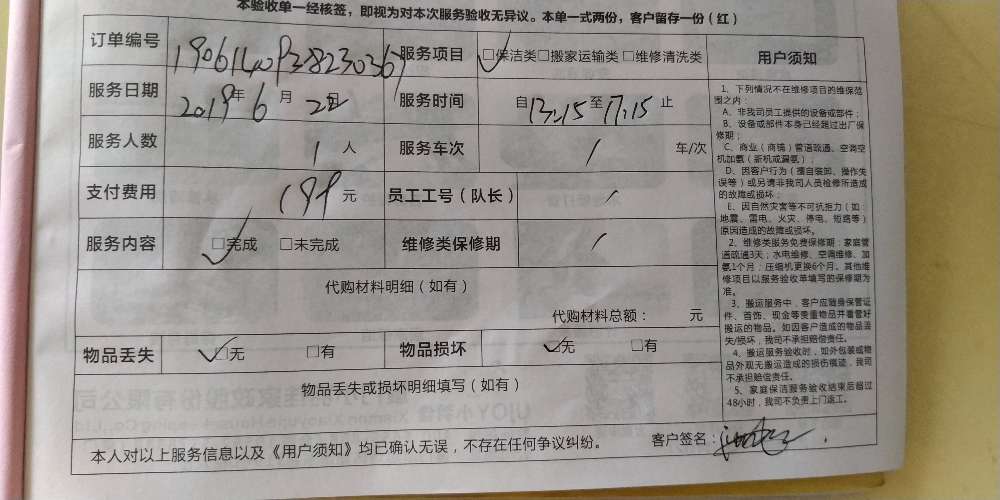 本验收单一经核签，即视为对本次服务验收无异议。本单一式两份，客户留存一份（红）
订单编号 服务项目 □保洁类□搬家运输类 □维修清洗类
服务日期 2019年 6 月 日 服务时间 自13:15至17:15 止
服务人数 1 人 服务车次 / 车/次
支付费用 199 元 员工工号（队长） /
服务内容 □完成 □未完成 维修类保修期 /
代购材料明细（如有）
代购材料总额： 元
物品丢失 □无 □有 物品损坏 □无 □有
物品丢失或损坏明细填写（如有）
本人对以上服务信息以及《用户须知》均已确认无误，不存在任何争议纠纷。 客户签名：
用户须知
1、下列情况不在维修项目的维保范
围之内：
A、非我司员工提供的设备或部件；
B、设备或部件本身已经超过出厂保
修期；
C、商业（商铺）管道疏通、空调空
机加氨（新机或漏氨）；
D、因客户行为（擅自装卸、操作失
误等）或另请非我司人员检修所造成
的故障或损坏；
E、因自然灾害等不可抗拒力（如：
地震、雷电、火灾、停电、短路等）
原因造成的故障或损坏。
2、维修类服务免费保修期：家庭管
道疏通3天；水电维修、空调维修、加
氨1个月；压缩机更换6个月。其他维
修项目以服务验收单填写的保修期为
准。
3、搬运服务中，客户应随身保管证
件、首饰、现金等贵重物品并看管好
搬运的物品。如因客户造成的物品丢
失/损坏，我司不承担赔偿责任。
4、搬运服务验收时，如外包装或物
品外观无搬运造成的损伤痕迹，我司
不承担赔偿责任。
5、家庭保洁服务验收结束后超过
48小时，我司不负责上门返工。